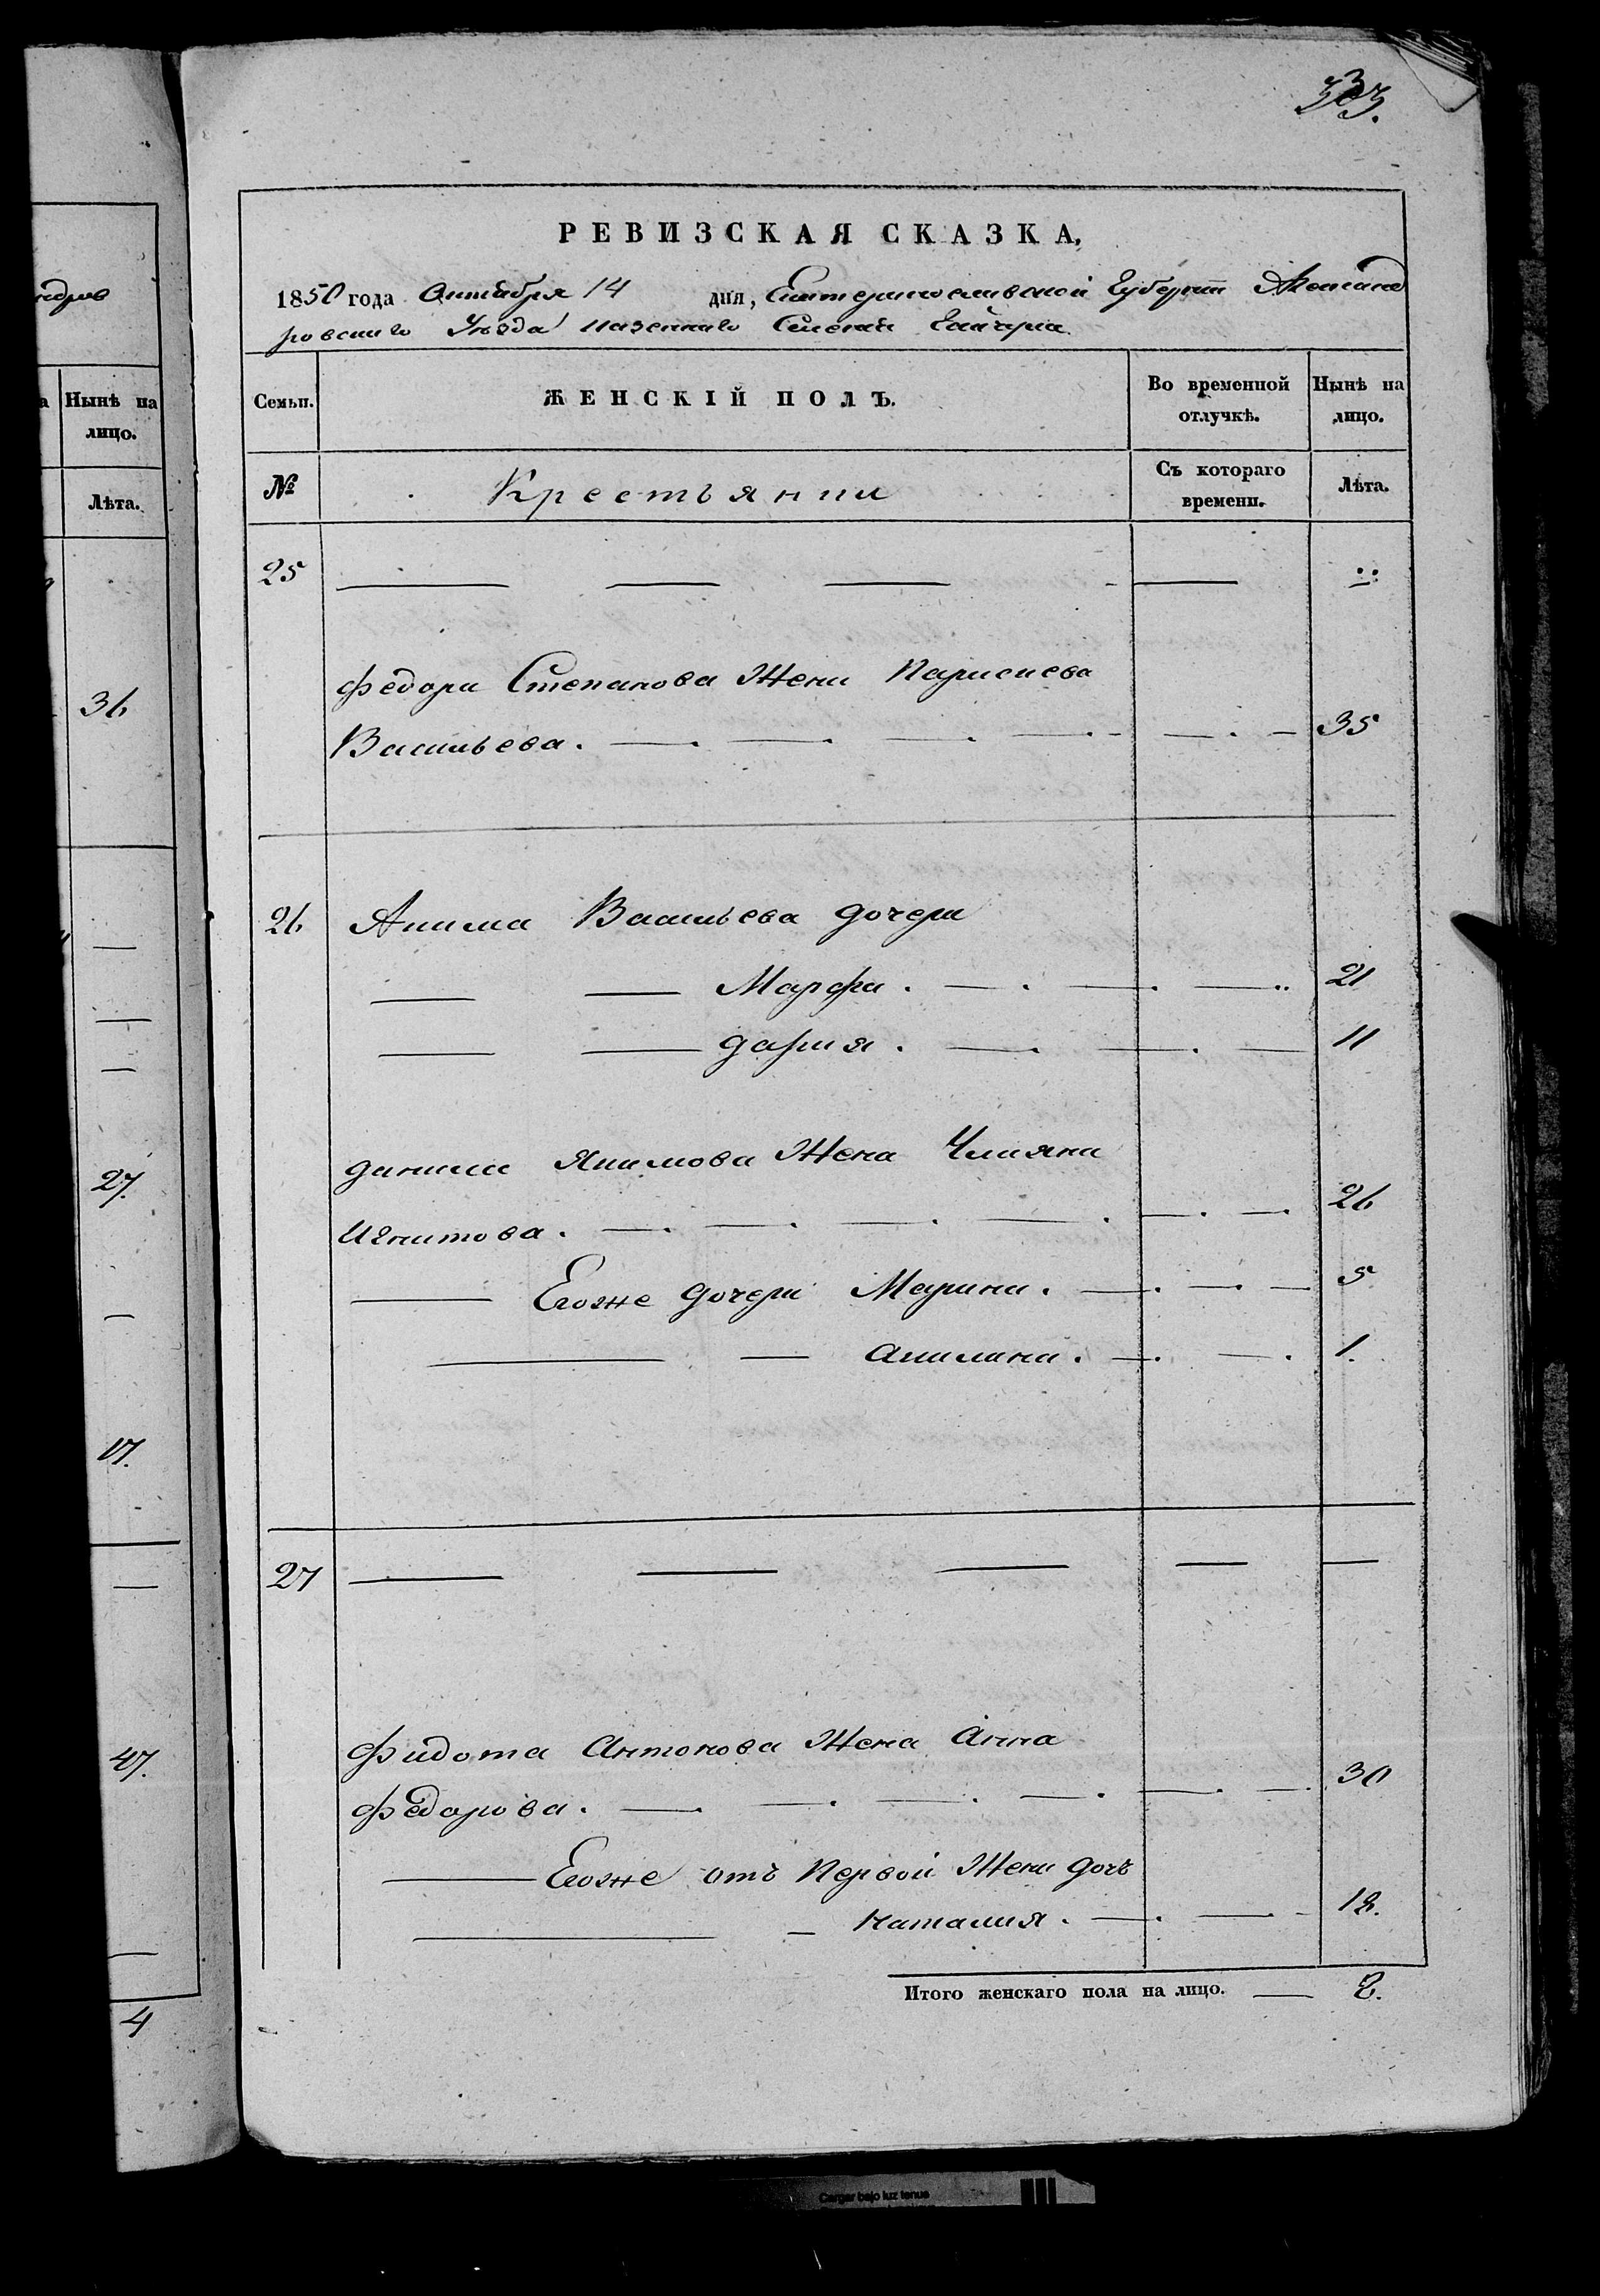 ндров
Нынѣ на
лицо.
Лѣта.
36
27.
17.
47.
4
РЕВИЗСКАЯ СКАЗКА,
1850 года Октября 14 дня, Екатеринославской Губерніи Александ
ровскаго Уѣзда казеннаго Селенія Гайчула
Семьи. ЖЕНСКІЙ ПОЛЪ. Во временной отлучкѣ. Нынѣ на лицо.
№ Крестьянки Съ котораго времени. Лѣта.
25
Федора Степанова Жена Параскева
Васильева. 35
26 Акима Васильева дочери
Марфа. 21
дария. 11
данила Якимова Жена Улияна
Игнатова. 26
Егоже дочери Марина. 5
акилина. 1.
27
Фидота Антонова Жена Анна
Федорова. 30
Егоже отъ Первой Жены дочь
Наталия. 12.
Итого женскаго пола на лицо. 8.
Cargar bajo luz tenue